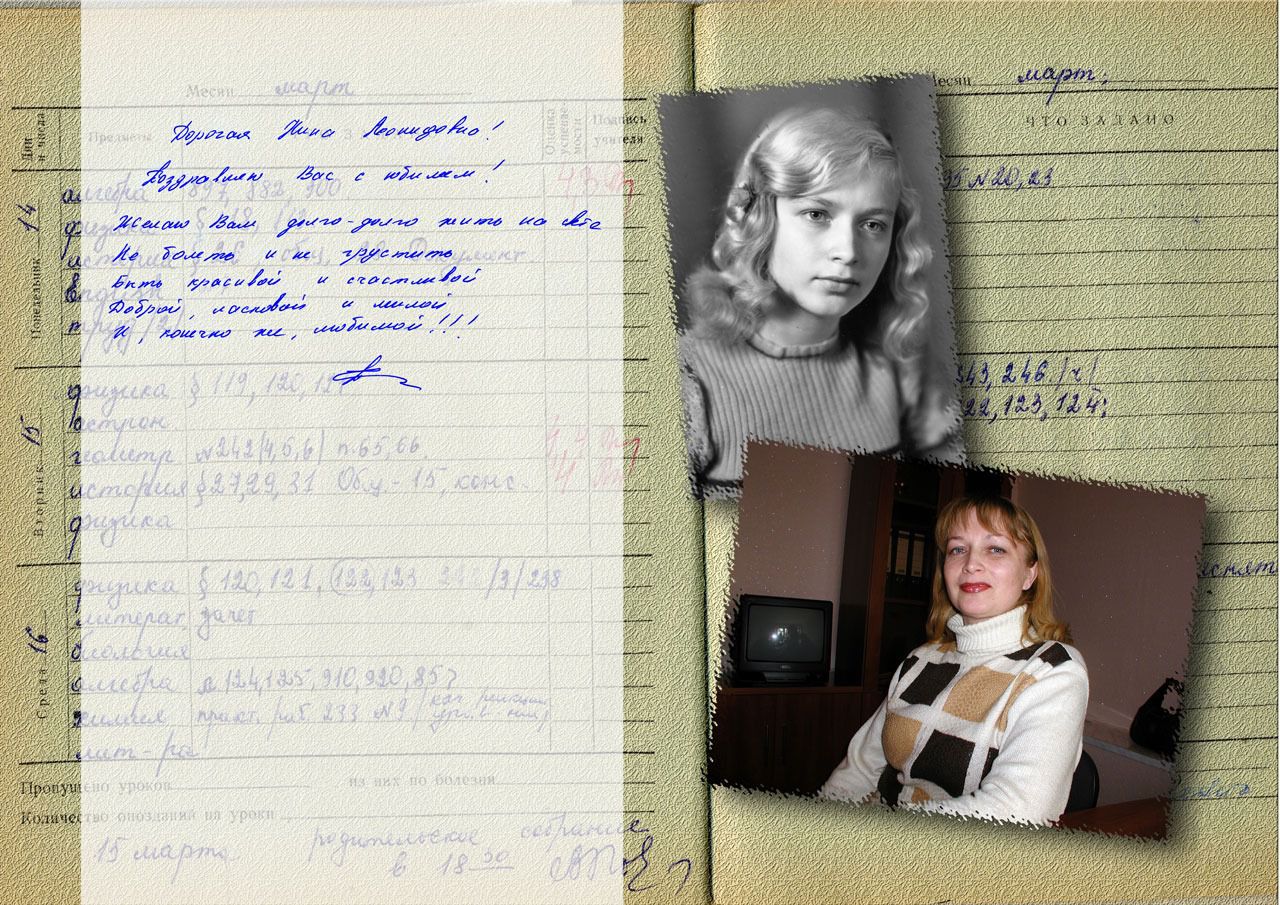 Месяц март
Дни и числа
Предметы
Оценка успеваемости
Подпись учителя
Дорогая Нина Леонидовна!
Поздравляю Вас с юбилеем!
Желаю Вам долго-долго жить на свете
Не болеть и не грустить
Быть красивой и счастливой
Доброй, ласковой и милой
И, конечно же, любимой!!!
Понедельник 14
алгебра 897, 882, 900
физика §
история § 26 Документ
труд
Вторник 15
физика § 119, 120, 12
астрон.
геометр №242(4,5,6) п.65,66.
история § 27,29,31 Общ.-15, конс.
физика
Среда 16
физика § 120, 121, (122, 123 242/3/238
литерат. зачет
биология
алгебра п.124,125, 910, 920, 857
химия практ. раб. 233 №9
лит-ра
Пропущено уроков из них по болезни
Количество опозданий на уроки
15 марта родительское собрание
в 18 30
Месяц март;
ЧТО ЗАДАНО
95 №20,23
343, 246 /ч/
22, 123, 124;